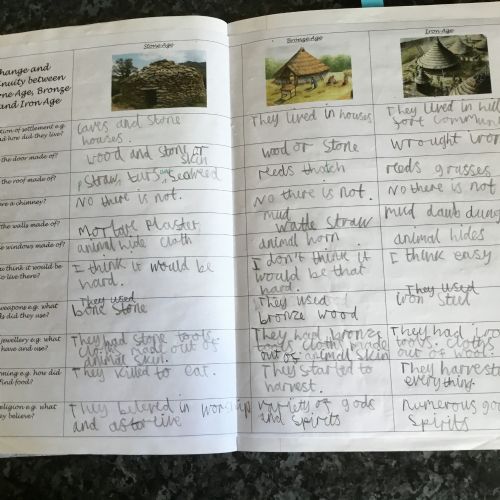 Stone Age
Bronze Age
Iron Age
hange and
nuity between
ne Age, Bronze
and Iron Age
tion of settlement e.g.
d how did they live?
caves and stone
houses.
They lived in houses
They lived in hill
fort communi
the door made of?
wood and stone or
skin
wood or stone
wrought iron
the roof made of?
straw, turs and seaweed
reeds thatch
reeds grasses
e a chimney?
No there is not.
No there is not.
No there is not
the walls made of?
Mortar plaster,
mud
wattle straw
mud daub dung
e windows made of?
animal hide cloth
animal horn
animal hides
u think it would be
to live there?
I think it would be
hard.
I don't think it
would be that
hard.
I think easy
weapons e.g. what
ls did they use?
They used
bone stone
They used
bronze wood
They used
iron steel
jewellery e.g. what
have and use?
They had stone tools
cloths made out of
animal skin.
They had bronze
tools cloths made
out of animal skin
They had iro
tools. cloths
out of wool
ming e.g. how did
find food?
They killed to eat.
They started to
harvest.
They harveste
everything
religion e.g. what
ey believe?
They beleved in worship
and
variety of gods
and spirits
numerous go
spirits